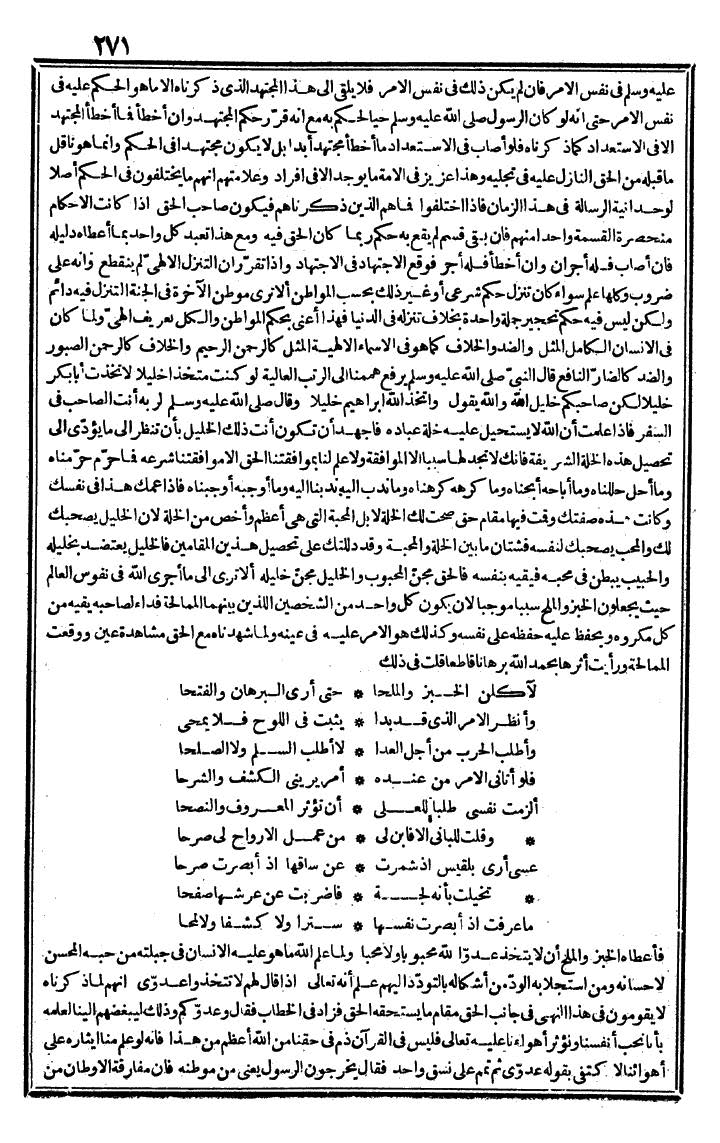 ٢٧١
عليه وسلم فى نفس الامر فان لم يكن ذلك فى نفس الامر فلا يلقى الى هذا المجتهد الذى ذكرناه الا ما هو الحكم عليه فى
نفس الامر حتى انه لو كان الرسول صلى الله عليه وسلم حيا لحكم به مع انه قرّر حكم المجتهد وان أخطأ فما أخطأ المجتهد
الا فى الاستعداد كما ذكرناه فلو أصاب فى الاستعداد ما أخطأ مجتهد أبدا بل لا يكون مجتهدا فى الحكم وانما هو ناقل
ما قبله من الحق النازل عليه فى تجليه وهذا عزيز فى الامة ما يوجد الا فى افراد وعلامتهم انهم ما يختلفون فى الحكم أصلا
لوحدانية الرسالة فى هذا الزمان فاذا اختلفوا فما هم الذين ذكرناهم فيكون صاحب الحق اذا كانت الاحكام
منحصرة القسمة واحدا منهم فان بقى قسم لم يقع به حكم ربما كان الحق فيه ومع هذا تعبد كل واحد بما أعطاه دليله
فان أصاب فله أجران وان أخطأ فله أجر فوقع الاجتهاد فى الاجتهاد واذا تقرّر ان التنزل الالهى لم ينقطع وانه على
ضروب وكلها علم سواء كان تنزل حكم شرعى أو غير ذلك بحسب المواطن ألا ترى موطن الآخرة فى الجنة التنزل فيه دائم
ولكن ليس فيه حكم تحجير جملة واحدة بخلاف تنزله فى الدنيا فهذا أعنى بحكم المواطن والكل تعريف الهى ولما كان
فى الانسان الكامل المثل والضد والخلاف كما هو فى الاسماء الالهية المثل كالرحمن الرحيم والخلاف كالرحمن الصبور
والضد كالضارّ النافع قال النبىّ صلى الله عليه وسلم يرفع هممنا الى الرتب العالية لو كنت متخذا خليلا لاتخذت أبابكر
خليلا لكن صاحبكم خليل الله والله يقول واتخذ الله ابراهيم خليلا وقال صلى الله عليه وسلم لربه أنت الصاحب فى
السفر فاذا علمت أن الله لا يستحيل عليه خلة عباده فاجهد أن تكون أنت ذلك الخليل بأن تنظر الى ما يؤدّى الى
تحصيل هذه الخلة الشريفة فانك لا تجد لها سببا الا الموافقة ولا علم لنا بموافقتنا الحق الا موافقتنا شرعه فما حرّم حرّمناه
وما أحل حللناه وما أباحه أبحناه وما كرهه كرهناه وما ندب اليه ندبنا اليه وما أوجبه أوجبناه فاذا عمك هذا فى نفسك
وكانت هذه صفتك وقت فيها مقام حق صحت لك الخلة لا بل المحبة التى هى أعظم وأخص من الخلة لان الخليل يصحبك
لك والمحب يصحبك لنفسه فشتان ما بين الخلة والمحبة وقد دللتك على تحصيل هذين المقامين فالخليل يعتضد بخليله
والحبيب يبطن فى محبه فيقيه بنفسه فالحق مجنّ المحبوب والخليل مجنّ خليله ألا ترى الى ما أجرى الله فى نفوس العالم
حيث يجعلون الخبز والملح سببا موجبا لان يكون كل واحد من الشخصين اللذين بينهما الممالحة فداء لصاحبه يقيه من
كل مكروه ويحفظ عليه حفظه على نفسه وكذلك هو الامر عليه فى عينه ولما شهدناه مع الحق مشاهدة عين ووقعت
الممالحة ورأيت أثرها بحمد الله برهانا قاطعا قلت فى ذلك
لآكلن الخبز والملحا * حتى أرى البرهان والفتحا
وأنظر الامر الذى قد بدا * يثبت فى اللوح فلا يمحى
وأطلب الحرب من أجل العدا * لا أطلب السلم ولا الصلحا
فلو أتانى الامر من عنده * أمر يرينى الكشف والشرحا
ألزمت نفسى طلبا للعلى * أن تؤثر المعروف والنصحا
* وقلت للبانى الا فابن لى * من عمل الارواح لى صرحا
عسى أرى بلقيس اذ شمرت * عن ساقها اذ أبصرت صرحا
* تخيلت بأنه لجة * فاضربت عن عرشها صفحا
ما عرفت اذ أبصرت نفسها * سترا ولا كشفا ولا لمحا
فأعطاه الخبز والملح أن لا يتخذ عدوّا لله محبوبا ولا محبا ولما علم الله ما هو عليه الانسان فى جبلته من حبه المحسن
لاحسانه ومن استجلابه الودّ من أشكاله بالتودّد اليهم علم أنه تعالى اذا قال لهم لا تتخذوا عدوّى انهم لما ذكرناه
لا يقومون فى هذا النهى فى جانب الحق مقام ما يستحقه الحق فزاد فى الخطاب فقال وعدوّكم وذلك ليبغضهم الينا لعلمه
بأنا نحب أنفسنا ونؤثر أهواءنا عليه تعالى فليس فى القرآن ذم فى حقنا من الله أعظم من هذا فانه لو علم منا ايثاره على
أهوائنا لاكتفى بقوله عدوّى ثم تمم على نسق واحد فقال يخرجون الرسول يعنى من موطنه فان مفارقة الاوطان من